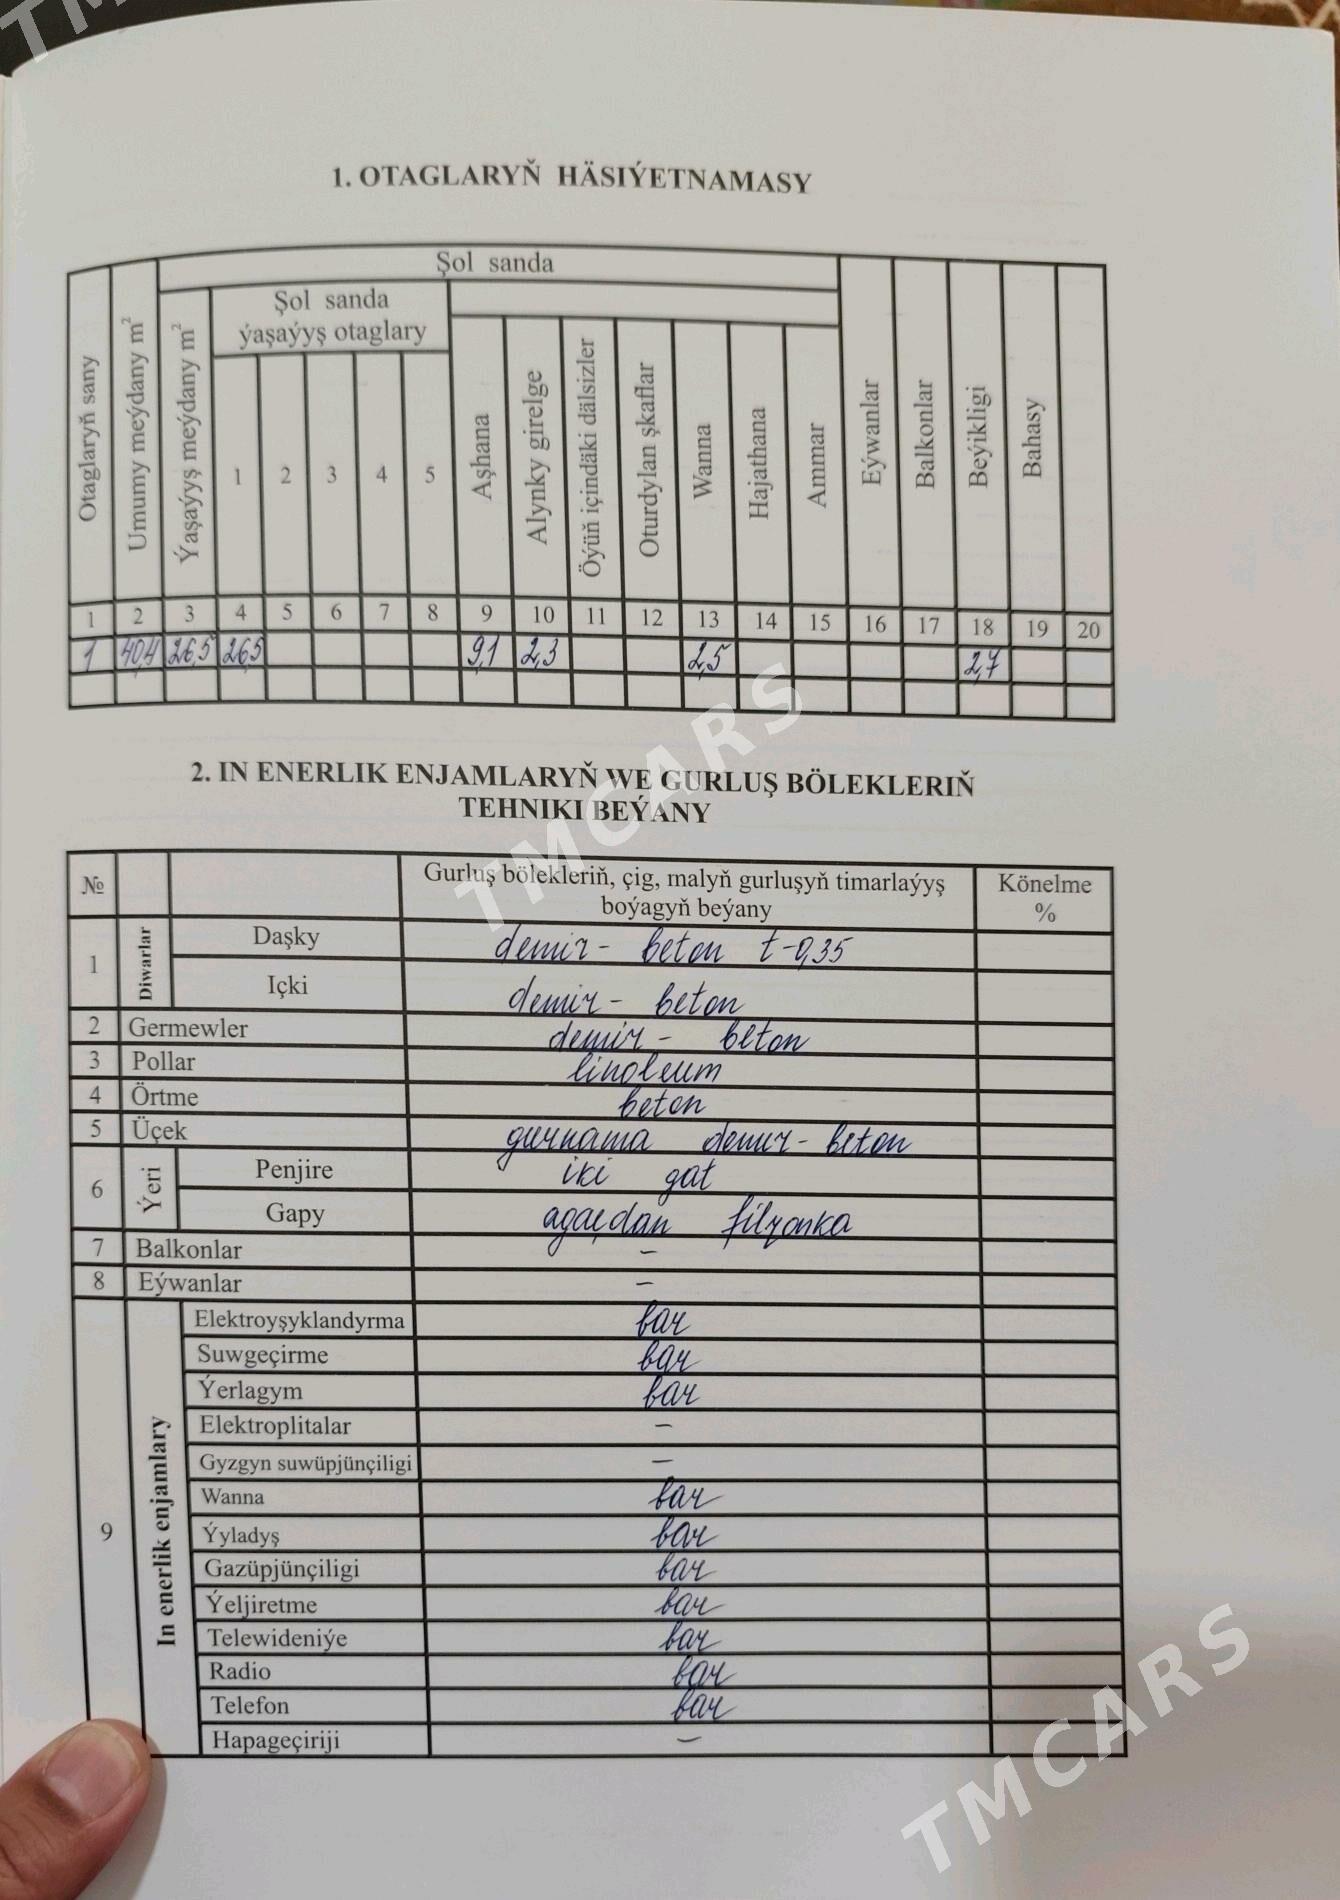 1. OTAGLARYŇ HÄSIÝETNAMASY
Şol sanda
Şol sanda
ýaşaýyş otaglary
Otaglaryň sany
Umumy meýdany m²
Ýaşaýyş meýdany m²
1 2 3 4 5
Aşhana
Alynky girelge
Öýüň içindäki dälsizler
Oturdylan şkaflar
Wanna
Hajathana
Ammar
Eýwanlar
Balkonlar
Beýikligi
Bahasy
1 2 3 4 5 6 7 8 9 10 11 12 13 14 15 16 17 18 19 20
1 40,4 26,5 26,5 9,1 2,3 2,5 2,7
2. IN ENERLIK ENJAMLARYŇ WE GURLUŞ BÖLEKLERIŇ
TEHNIKI BEÝANY
№ Gurluş bölekleriň, çig, malyň gurluşyň timarlaýyş Könelme
boýagyň beýany %
1 Diwarlar Daşky demir - beton t-0,35
Içki demir - beton
2 Germewler demir - beton
3 Pollar linoleum
4 Örtme beton
5 Üçek gurnama demir-beton
6 Ýeri Penjire iki gat
Gapy agaçdan filyonka
7 Balkonlar –
8 Eýwanlar –
9 In enerlik enjamlary Elektroyşyklandyrma bar
Suwgeçirme bar
Ýerlagym bar
Elektroplitalar –
Gyzgyn suwüpjünçiligi –
Wanna bar
Ýyladyş bar
Gazüpjünçiligi bar
Ýeljiretme bar
Telewideniýe bar
Radio bar
Telefon bar
Hapageçiriji –
TMCARS
TMCARS
TMCARS